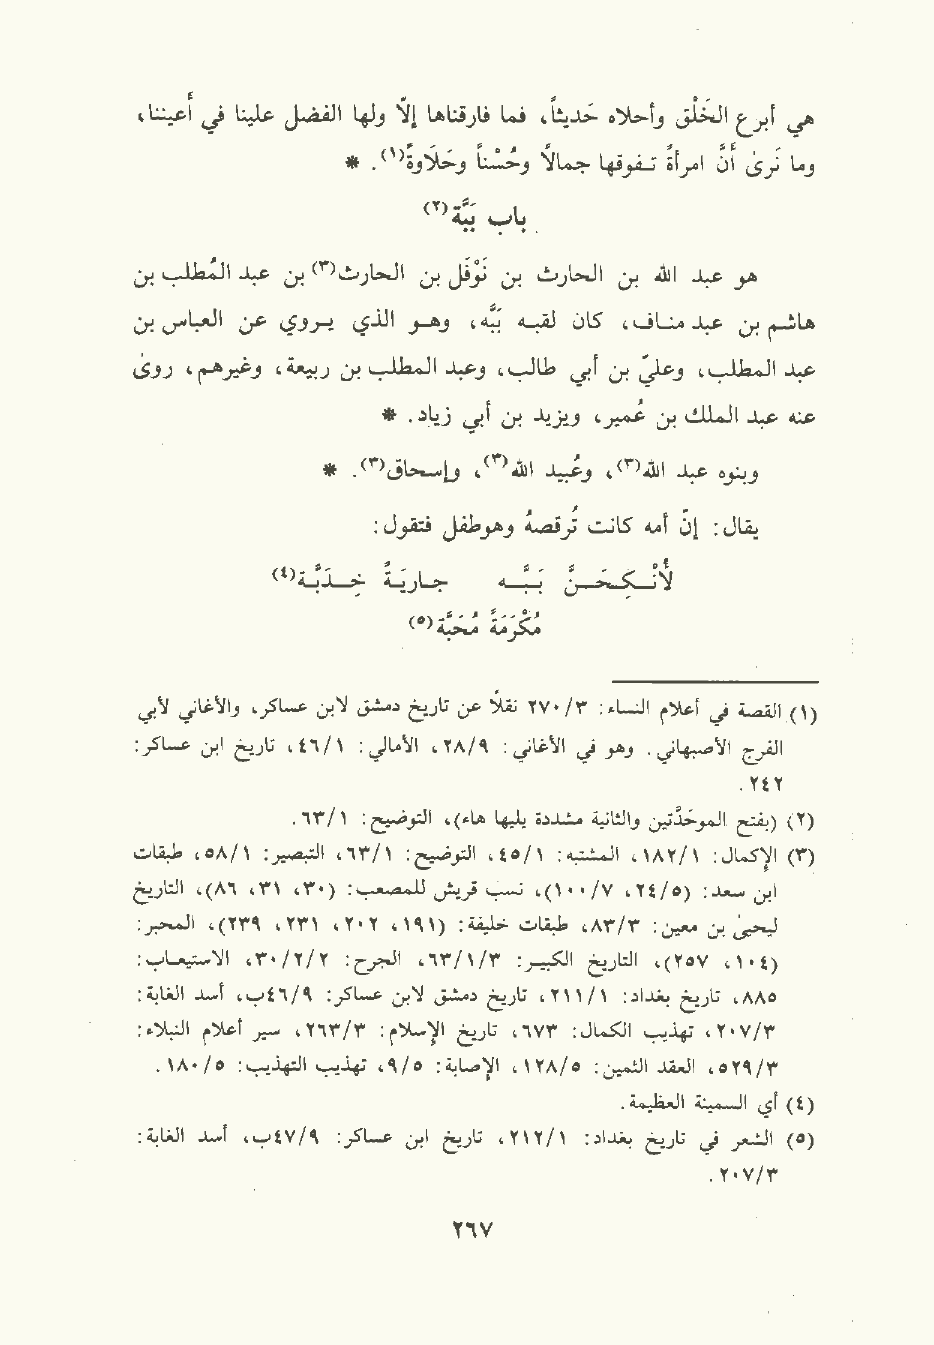 هي أبرع الخَلْق وأحلاه حَديثاً، فما فارقناها إلاّ ولها الفضل علينا في أعيننا،
وما نَرىٰ أَنّ امرأةً تفوقها جمالاً وحُسْناً وحَلَاوةً(١). *
باب بَبَّة(٢)
هو عبد الله بن الحارث بن نَوْفَل بن الحارث(٣) بن عبد المُطلب بن
هاشم بن عبد مناف، كان لقبه بَبَّه، وهو الذي يروي عن العباس بن
عبد المطلب، وعليّ بن أبي طالب، وعبد المطلب بن ربيعة، وغيرهم، روىٰ
عنه عبد الملك بن عُمير، ويزيد بن أبي زياد. *
وبنوه عبد الله(٣)، وعُبيد الله(٣)، وإسحاق(٣). *
يقال: إنّ أمه كانت تُرقصهُ وهوطفل فتقول:
لَأُنْكِحَنَّ بَبَّه جارِيَةً خِدَبَّة(٤)
مُكْرَمَةً مُحَبَّة(٥)
(١) القصة في أعلام النساء: ٣/٢٧٠ نقلاً عن تاريخ دمشق لابن عساكر، والأغاني لأبي
الفرج الأصبهاني. وهو في الأغاني: ٩/٢٨، الأمالي: ١/٤٦، تاريخ ابن عساكر:
٢٤٢.
(٢) (بفتح الموحَّدتين والثانية مشددة يليها هاء)، التوضيح: ١/٦٣.
(٣) الإكمال: ١/١٨٢، المشتبه: ١/٤٥، التوضيح: ١/٦٣، التبصير: ١/٥٨، طبقات
ابن سعد: (٥/٢٤، ٧/١٠٠)، نسب قريش للمصعب: (٣٠، ٣١، ٨٦)، التاريخ
ليحيىٰ بن معين: ٣/٨٣، طبقات خليفة: (١٩١، ٢٠٢، ٢٣١، ٢٣٩)، المحبر:
(١٠٤، ٢٥٧)، التاريخ الكبير: ٣/١/٦٣، الجرح: ٢/٢/٣٠، الاستيعاب:
٨٨٥، تاريخ بغداد: ١/٢١١، تاريخ دمشق لابن عساكر: ٩/٤٦ب، أسد الغابة:
٣/٢٠٧، تهذيب الكمال: ٦٧٣، تاريخ الإسلام: ٣/٢٦٣، سير أعلام النبلاء:
٣/٥٢٩، العقد الثمين: ٥/١٢٨، الإصابة: ٥/٩، تهذيب التهذيب: ٥/١٨٠.
(٤) أي السمينة العظيمة.
(٥) الشعر في تاريخ بغداد: ١/٢١٢، تاريخ ابن عساكر: ٩/٤٧ب، أسد الغابة:
٣/٢٠٧.
٢٦٧